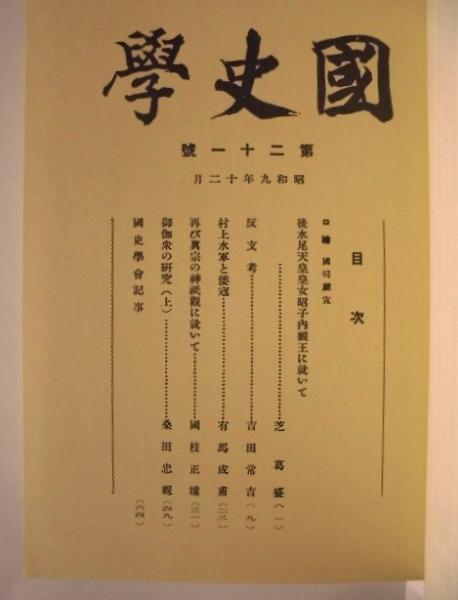 國史學
第二十一號
昭和九年十二月
目次
口繪 國司廳宣
後水尾天皇皇女昭子內親王に就いて
芝葛盛(一)
反支考
吉田常吉(九)
村上水軍と倭寇
有馬成甫(二三)
再び眞宗の神祇觀に就いて
國枝正雄(三一)
御伽衆の硏究(上)
桑田忠親(四九)
國史學會記事
(六四)